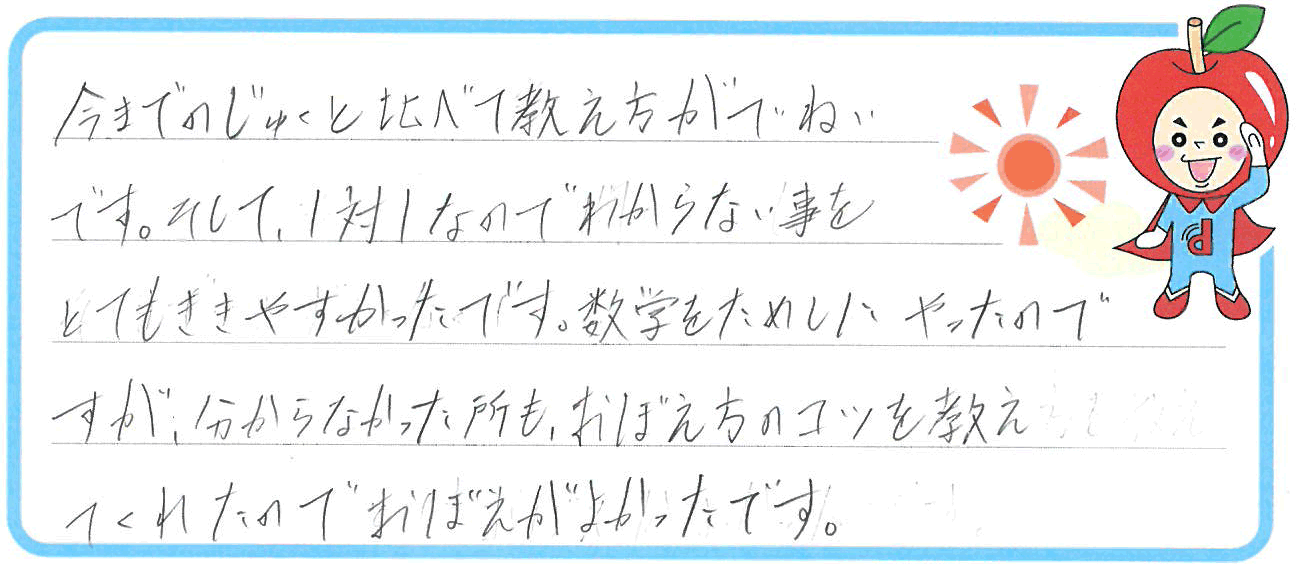 今までのじゅくと比べて教え方がでいねい
です。そして、1対1なのでわからない事を
とてもききやすかったです。数学をためしに やったので
すが、分からなかった所も、おぼえ方のコツを教え
てくれたのでおぼえがよかったです。